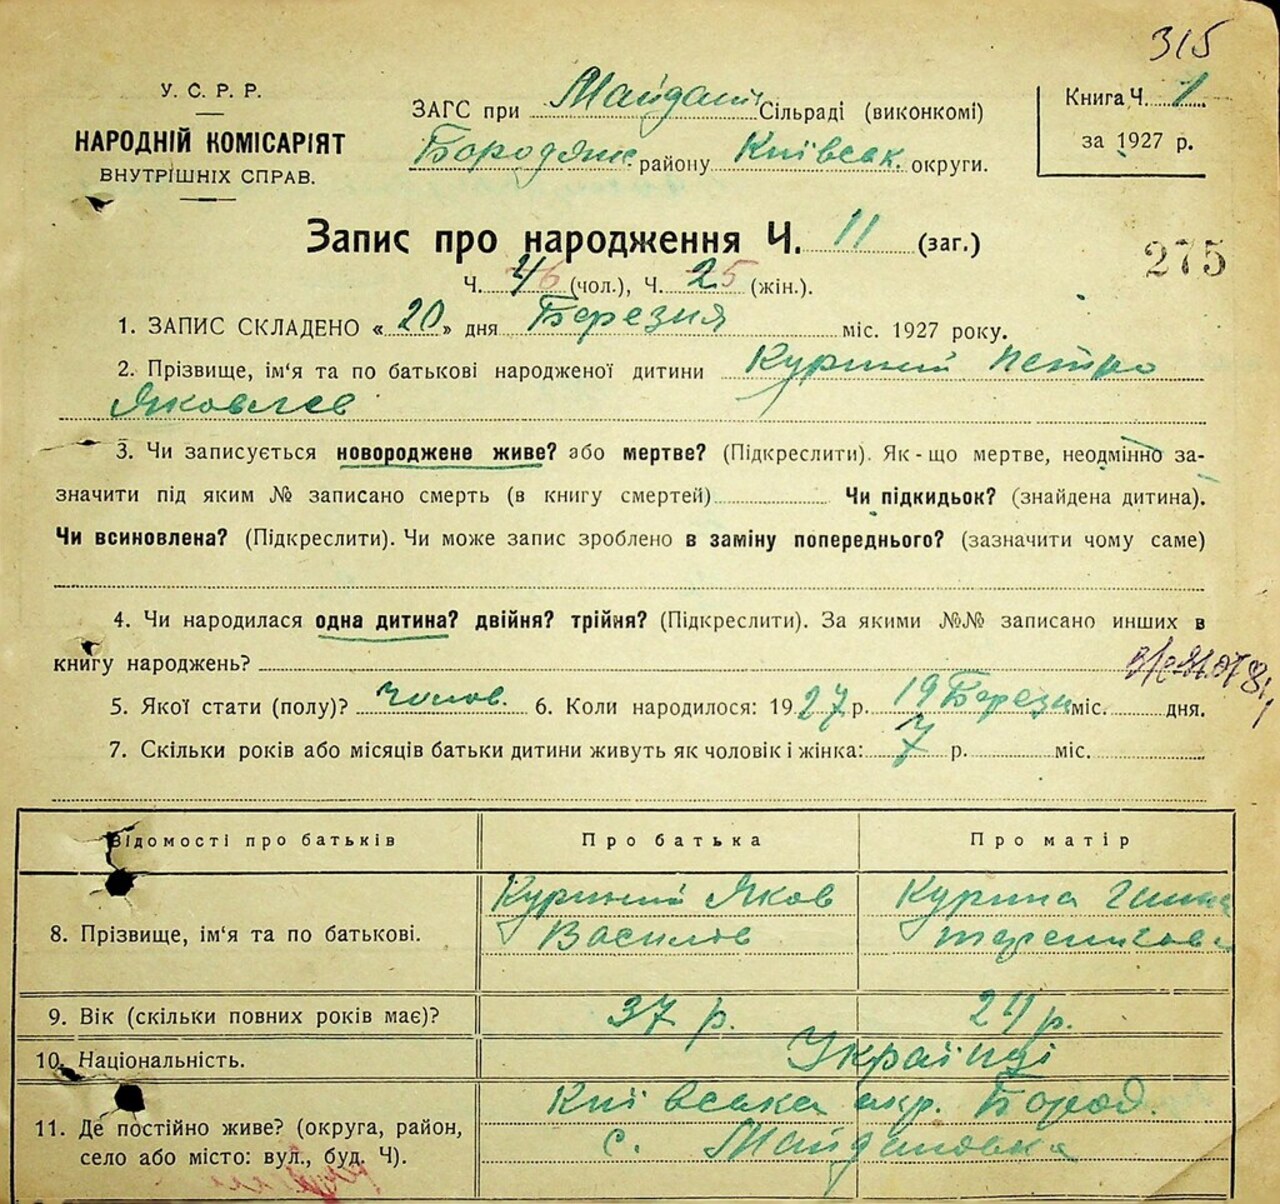 315
У. С. Р. Р.
НАРОДНІЙ КОМІСАРІЯТ
ВНУТРІШНІХ СПРАВ.
ЗАГС при Майдані Сільраді (виконкомі)
Бородянс. району Київськ. округи.
Книга Ч. 1
за 1927 р.
Запис про народження Ч. 11 (заг.)
275
Ч. (чол.), Ч. 25 (жін.).
1. ЗАПИС СКЛАДЕНО « 20 » дня Березня міс. 1927 року.
2. Прізвище, ім'я та по батькові народженої дитини Куриний Петро
Яковлев
3. Чи записується новороджене живе? або мертве? (Підкреслити). Як-що мертве, неодмінно за-
значити під яким № записано смерть (в книгу смертей) Чи підкидьок? (знайдена дитина).
Чи всиновлена? (Підкреслити). Чи може запис зроблено в заміну попереднього? (зазначити чому саме)
4. Чи народилася одна дитина? двійня? трійня? (Підкреслити). За якими №№ записано инших в
книгу народжень?
5. Якої стати (полу)? чолов. 6. Коли народилося: 1927 р. 19 Березня міс. дня.
7. Скільки років або місяців батьки дитини живуть як чоловік і жінка: 7 р. міс.
Відомості про батьків Про батька Про матір
8. Прізвище, ім'я та по батькові. Куриний Яков Курина Ганна
Василів
9. Вік (скільки повних років має)? 37 р. 24 р.
10. Національність. Українці
11. Де постійно живе? (округа, район, Київська окр. Бород.
село або місто: вул., буд. Ч). с. Майдановка